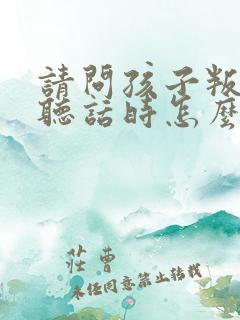 請問孩子叛
聽話時怎麼
莊曹
未經同意禁止轉載